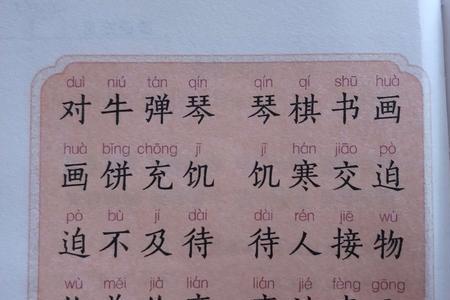 duì niú tán qín qín qí shū huà
对牛弹琴 琴棋书画
huà bǐng chōng jī jī hán jiāo pò
画饼充饥 饥寒交迫
pò bù jí dài dài rén jiē wù
迫不及待 待人接物
wù měi jià lián lián jié fèng gōng